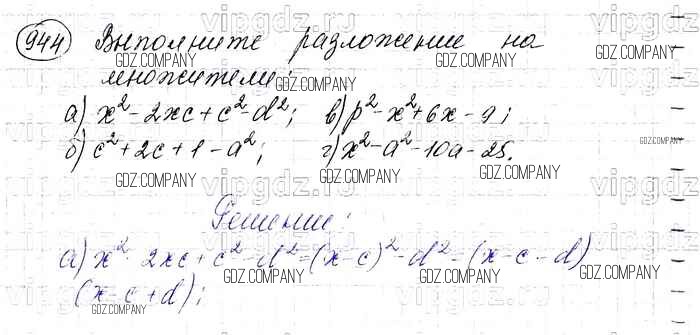 944 Выполните разложение на
множители:
а) x² - 2xc + c² - d²; в) p² - x² + 6x - 9;
б) c² + 2c + 1 - a²; г) x² - a² - 10a - 25.
Решение:
а) x² - 2xc + c² - d² = (x - c)² - d² = (x - c - d)
(x - c + d);
vipgdz.ru
GDZ.COMPANY